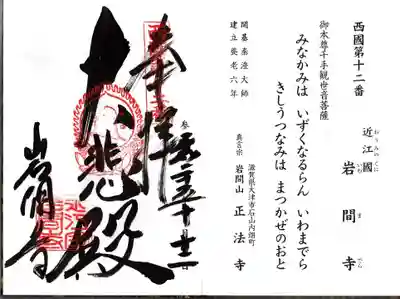 西國第十二番
近江國
岩間寺
いわ ま でら
御本尊千手観世音菩薩
みなかみは いずくなるらん いわまでら
きしうつなみは まつかぜのおと
開基泰澄大師
建立養老六年
滋賀県大津市石山内畑町
真言宗 岩間山 正法寺
奉拝
大悲殿
岩間寺